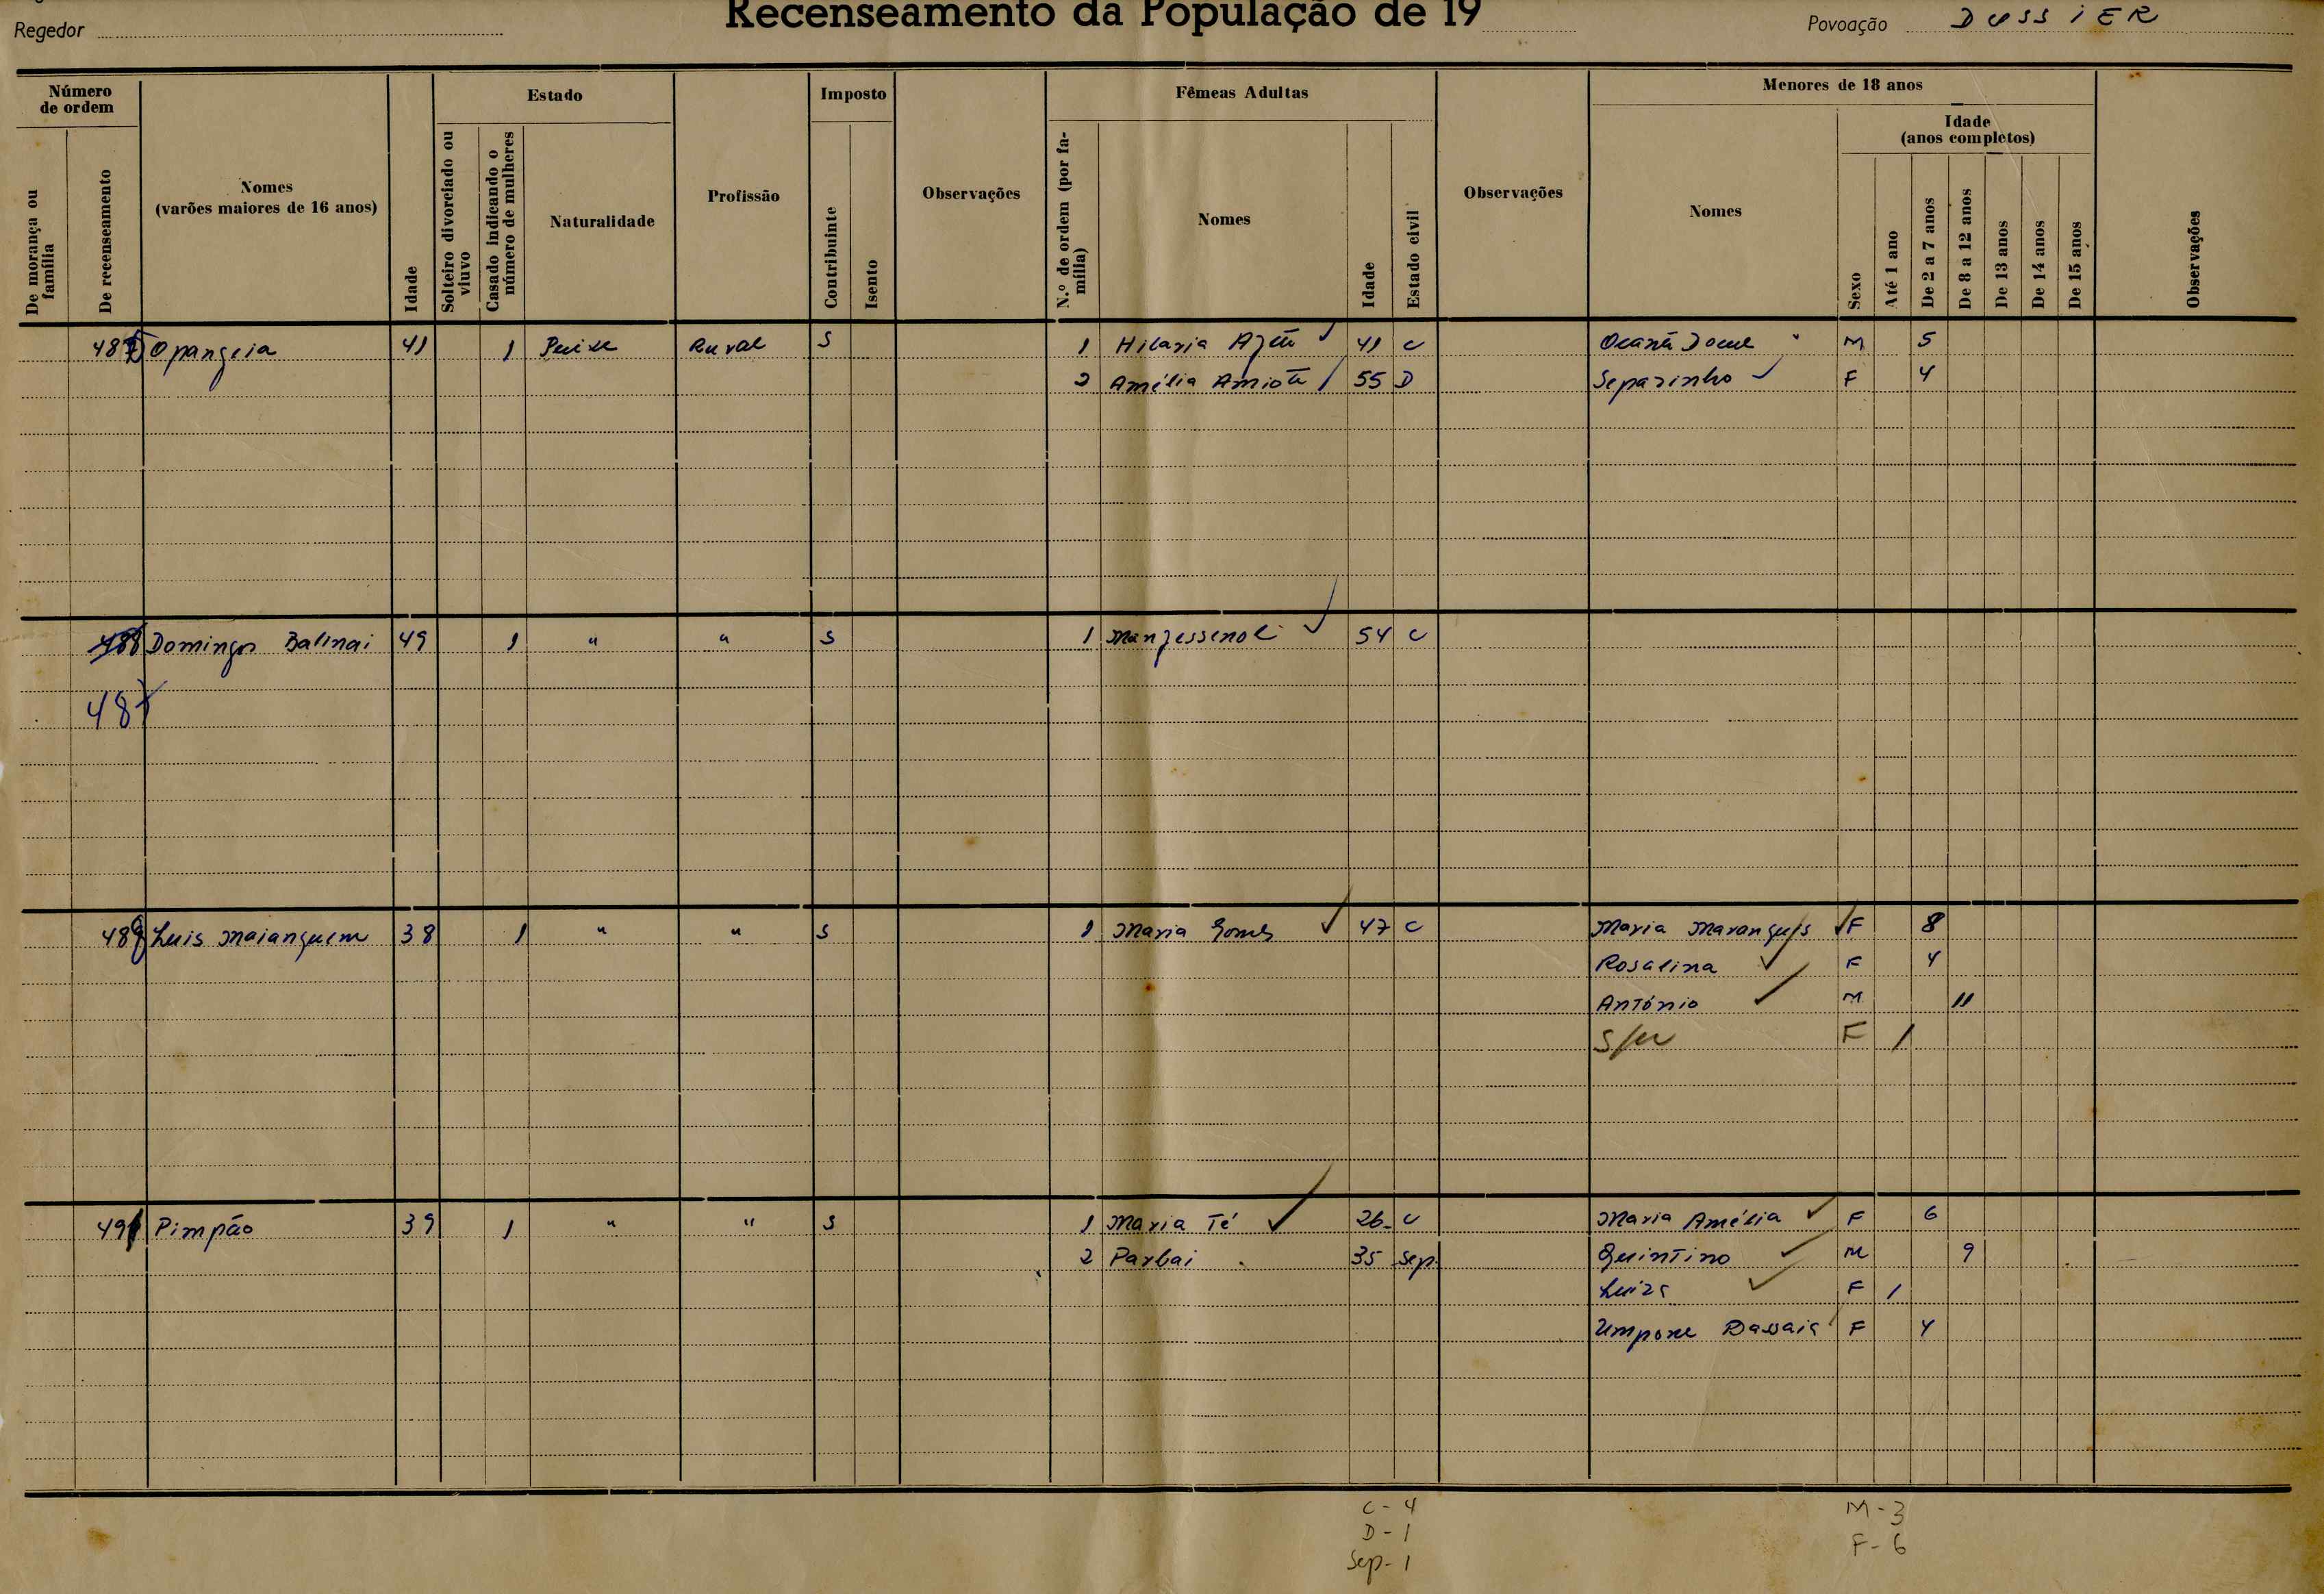 Recenseamento da População de 19
Regedor
Povoação DUSSIER
Número de ordem
De morança ou família
De recenseamento
Nomes (varões maiores de 16 anos)
Idade
Estado
Solteiro divorciado ou viuvo
Casado indicando o número de mulheres
Naturalidade
Profissão
Imposto
Contribuinte
Isento
Observações
Fêmeas Adultas
N.º de ordem (por família)
Nomes
Idade
Estado civil
Observações
Menores de 18 anos
Nomes
Sexo
Idade (anos completos)
Até 1 ano
De 2 a 7 anos
De 8 a 12 anos
De 13 anos
De 14 anos
De 15 anos
Observações
Opangeia 41 1 Rural S 1 Hilaria 41 C M 5
2 Amélia Amiotē 55 D Separinho F 4
488 Domingos Balinai 49 1 " " S 1 54 C
489 Luis Maianguem 38 1 " " S 1 Maria Gomes 47 C Maria F 8
Rosalina F 4
António M 11
F 1
Pimpão 39 1 " " S 1 Maria Té 26 C Maria Amélia F 6
2 Parbai 35 Sep. Quintino M 9
Luiza F 1
F 4
C - 4
D - 1
Sep - 1
M - 3
F - 6